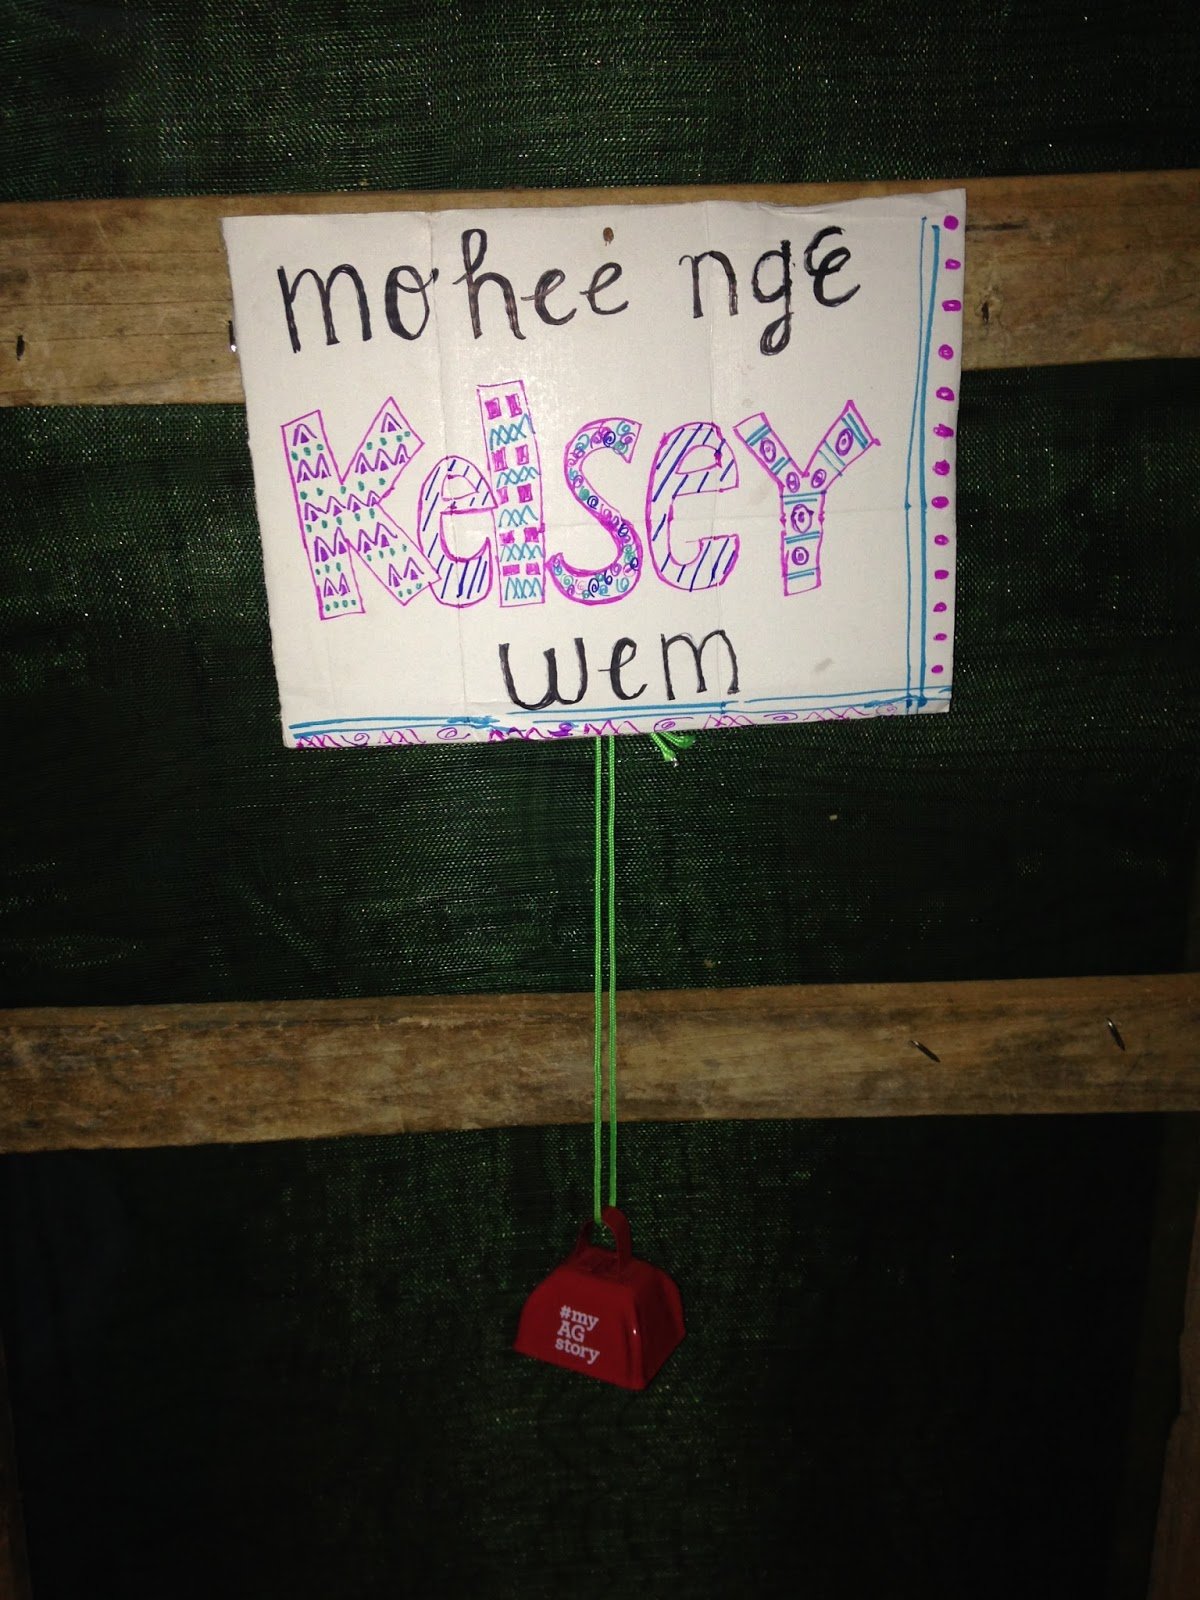 mohee nge
Kelsey
wem
#my
AG
story